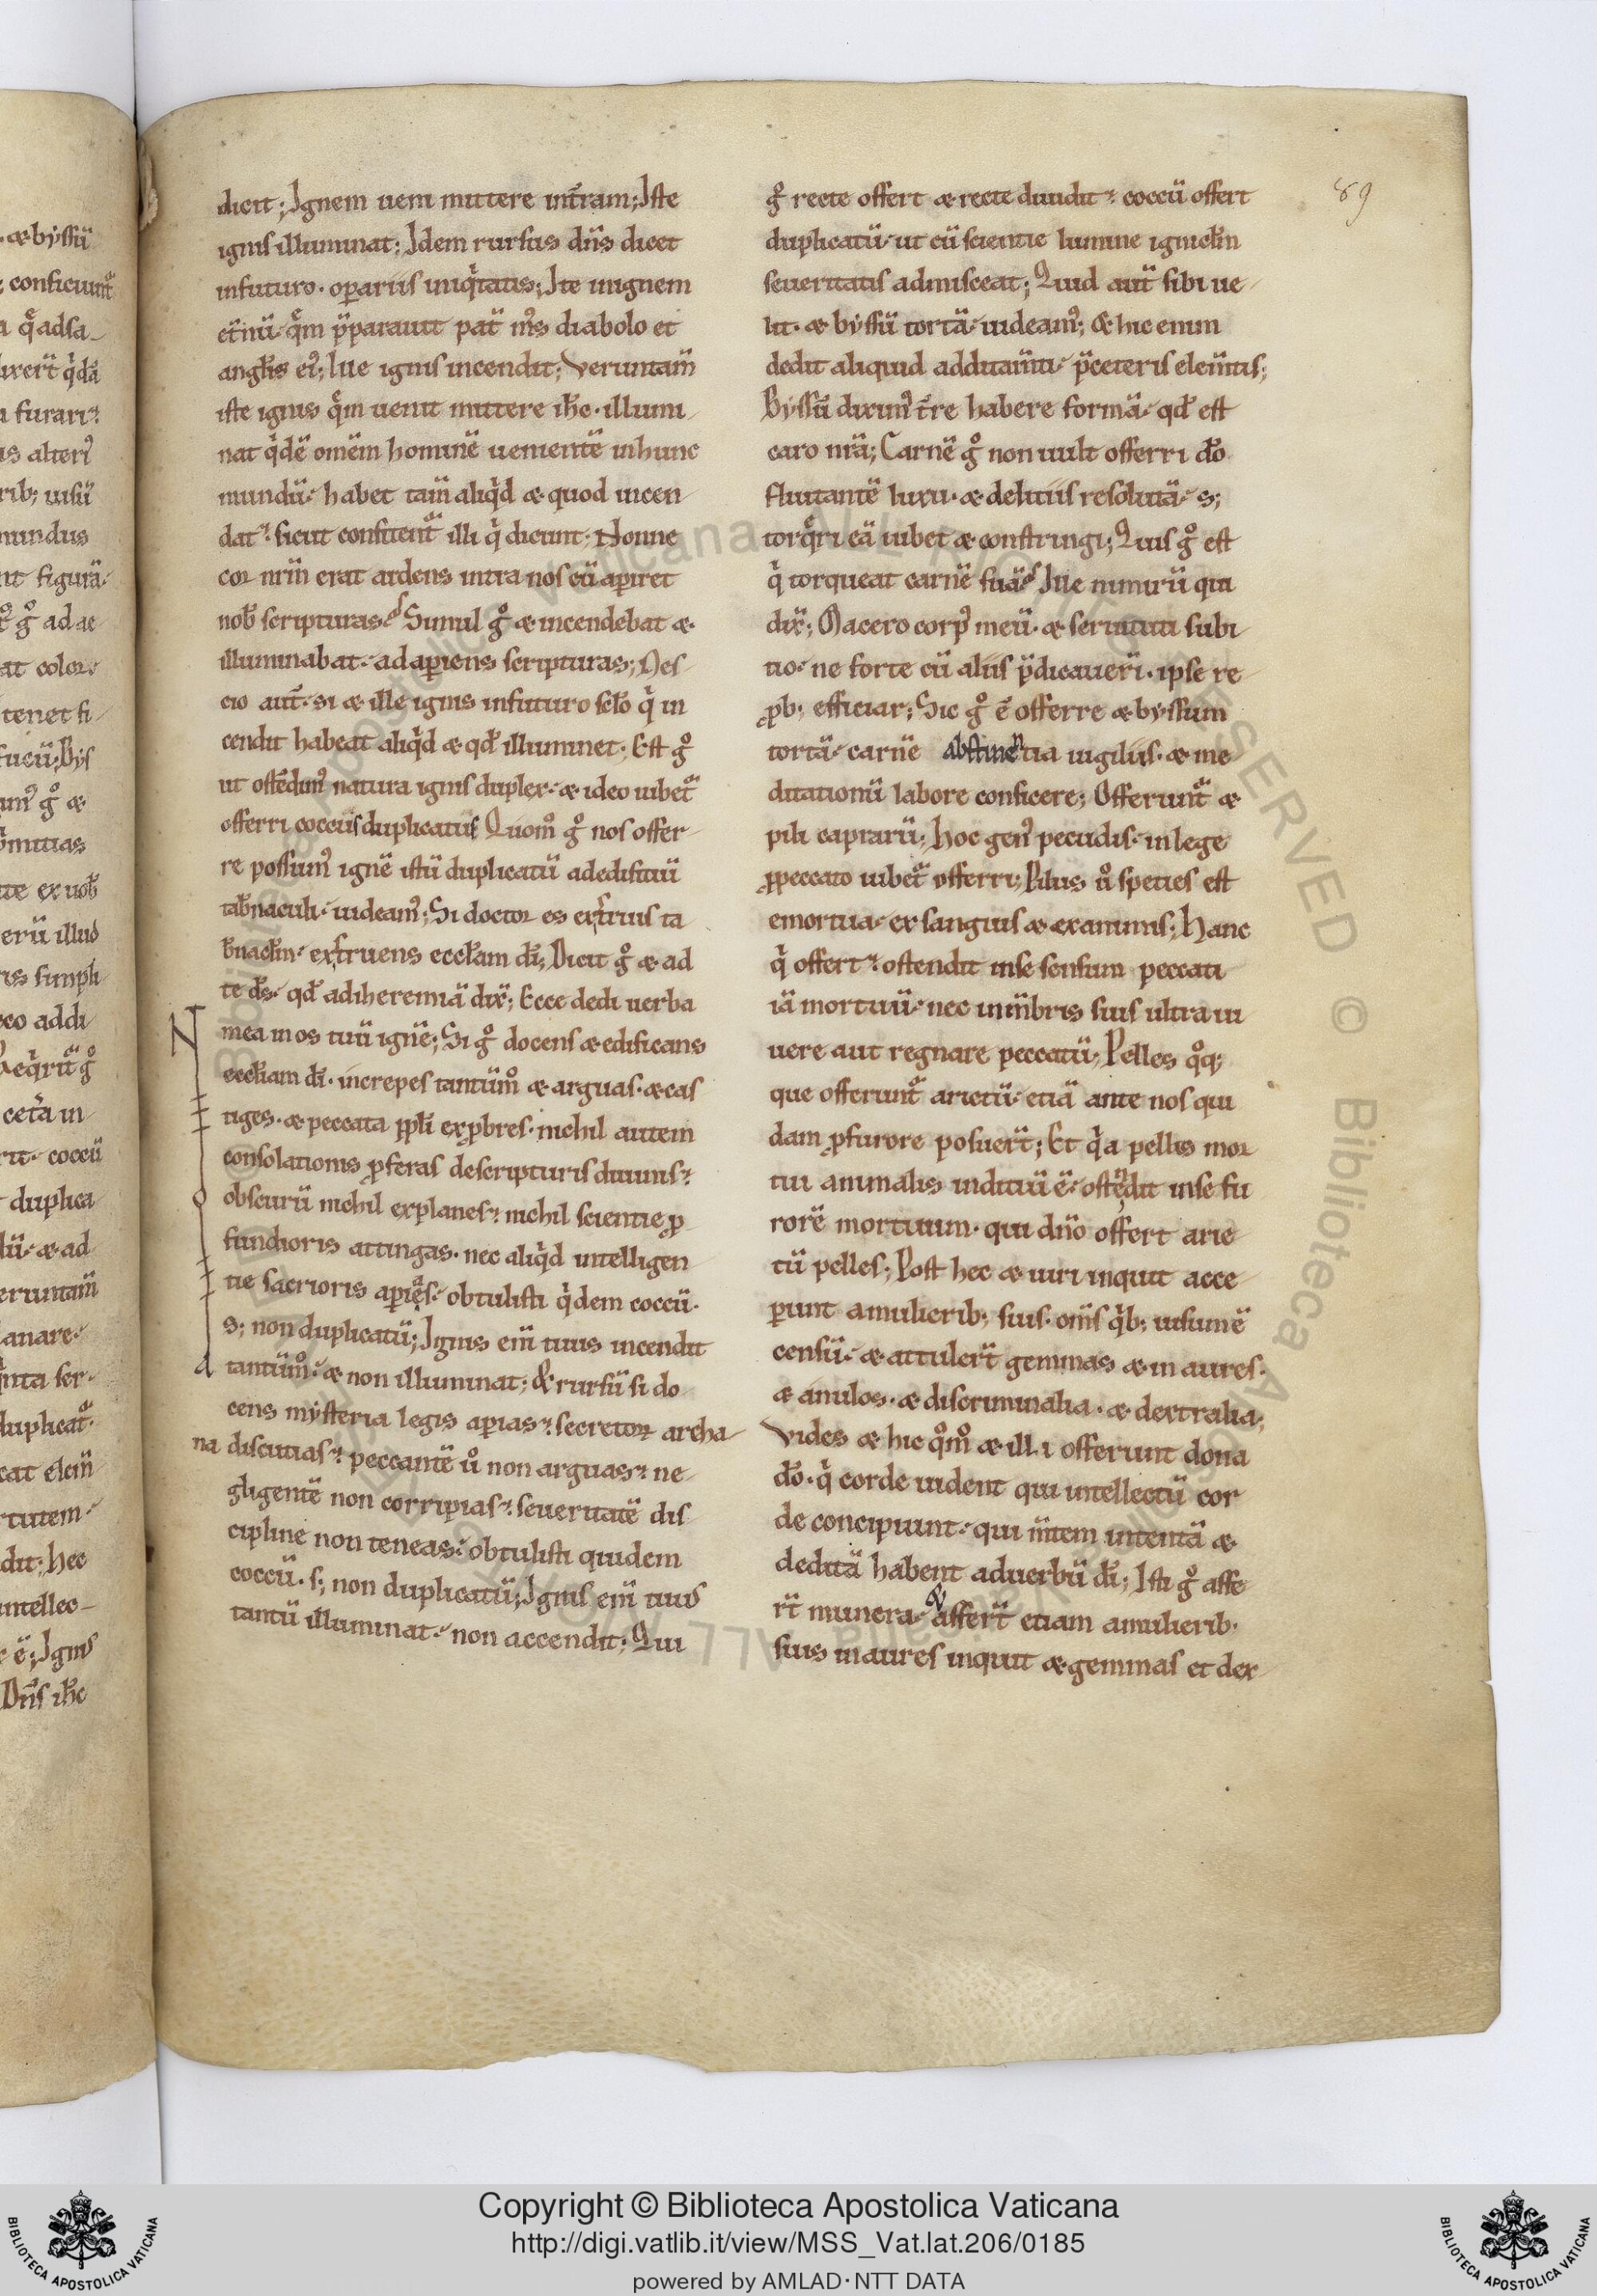 dicit; Ignem ueni mittere int̄ram; Iste
ignis illuminat; Idem rursus dn̄s dicet
infuturo· opariis iniqͥtatis; Ite inignem
et̄nū· qͣm p̄parauit pat̄ mꝰs diabolo et
angl̄is eiꝰ; Iste ignis incendit; Veruntam̄
iste ignis qͣm uenit mittere ih̄c· illumi
nat qͥdē omēm hominē uenientē inhunc
mundū· habet tam̄ aliqͥd æ quod incen
dat· sicut confitentᷣ illi qͥ dicunt; Nonne
cor nrm̄ erat ardens intra nos cū aperiret
nob̄ scripturas? Simul gͦ æ incendebat æ
illuminabat· adaperiens scripturas; Nes
cio aut̄· si æ ille ignis infuturo sclō qͥ in
cendit habeat aliqͥd æ qd̄ illuminet; Est gͦ
ut ostēdimꝰ natura ignis duplex· æ ideo iubetᷣ
offerri coccus duplicatus Quomͦ gͦ nos offer
re possumꝰ ignē istū duplicatū adedifitiū
tab̄naculi· uideamꝰ; Si doctor es extruis ta
b̄nacl̄m· extruens eccl̄am dī; Dicit gͦ æ ad
te ds̄· qd̄ adiheremiā dix̄; Ecce dedi uerba
mea inos tuū ignē; Si gͦ docens æ edificans
eccl̄iam dī· increpes tantūmͦ æ arguas· æ cas
tiges· æ peccata ppl̄i exꝓbres· nichil autem
consolationis ꝓferas descripturis diuinis·
obscurū nichil explanes· nichil scientie ꝓ
fundioris attingas· nec aliqͥd intelligen
tie sacrioris aperies· obtulisti qͥdem coccū·
s; non duplicatū; Ignis em̄ tuus incendit
tantūmͦ· æ non illuminat; & rursū si do
cens mysteria legis aperias· secretor archa
na discutias· peccantē uͦ non arguas· ne
gligentē non corripias· seueritatē dis
cipline non teneas· obtulisti quidem
coccū· s; non duplicatū; Ignis em̄ tuus
tantū illuminat· non accendit; Qui
gͦ recte offert æ recte diuidit· coccū offert
duplicatū· ut cū scientie lumine ignicl̄m
seueritatis admisceat; Quid aut̄ sibi ue
lit· æ byssū tortā· uideamꝰ; & hic enim
dedit aliquid additam̄ti· p̄ceteris elem̄tis;
Byssū diximꝰ t̄re habere formā· qd̄ est
caro nrā; Carnē gͦ non uult offerri dō
fluitantē luxu· æ delitiis resolutā· s;
torqͣri eā iubet æ constringi; Quis gͦ est
qͥ torqueat carnē suā? Ille nimirū qui
dix̄; Macero corpꝰ meū· æ seruituti subi
tio· ne forte cū aliis p̄dicauerī· ipse re
ꝓb; efficiar; Sic gͦ ē offerre æ byssum
tortā· carnē abstinentia uigiliis· æ me
ditationū labore conficere; Offeruntᷣ æ
pili caprarū; Hoc genꝰ pecudis· in lege
ꝓpeccato iubetᷣ offerri; Pilus uͦ species est
emortua· exsanguis æ exanimis; Hanc
qͥ offert· ostendit inse sensum peccati
iā mortuū· nec inm̄bris suis ultra ui
uere aut regnare peccatū; Pelles qͦq;
que offeruntᷣ arietū· etiā ante nos qui
dam ꝓfurore posuer̄t; Et qͥa pellis mor
tui animalis inditiū ē· ostēdit inse fu
rorē mortuum· qui dn̄o offert arie
tū pelles; Post hec æ uiri inquit acce
perunt amulierib; suis· omīs qͥb; uisumē
censū· æ attuler̄t gemmas æ in aures·
æ anulos· æ discriminalia· æ dextralia;
Vides æ hic qͦmͦ æ illi offerunt dona
dō· qͥ corde uident qui intellectū cor
de concipiunt· qui m̄tem intentā æ
deditā habent aduerbū dī; Isti gͦ affe
rt̄ munera· & affert̄ etiam amulierib;
suis inaures inquit æ gemmas et dex
89
Copyright © Biblioteca Apostolica Vaticana
http://digi.vatlib.it/view/MSS_Vat.lat.206/0185
powered by AMLAD·NTT DATA
BIBLIOTECA APOSTOLICA VATICANA
BIBLIOTECA APOSTOLICA VATICANA